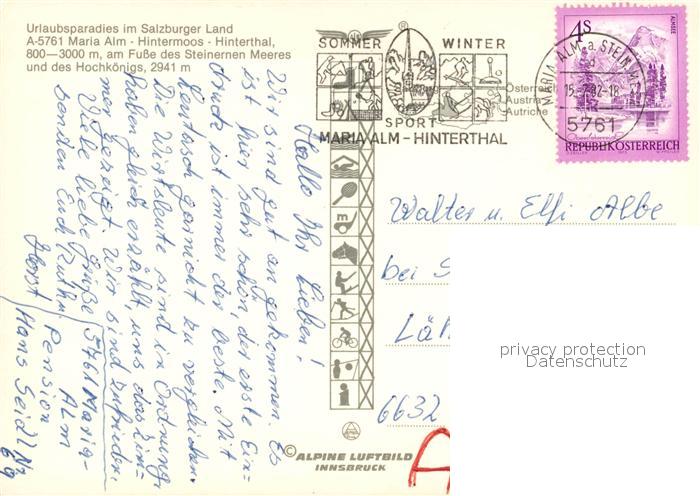 Urlaubsparadies im Salzburger Land
A-5761 Maria Alm - Hintermoos - Hinterthal,
800—3000 m, am Fuße des Steinernen Meeres
und des Hochkönigs, 2941 m
SOMMER WINTER
SPORT
MARIA ALM - HINTERTHAL
Österreich
Austria
Autriche
MARIA ALM a. STEIN. M.
15.-7.82-18
5761
4S
ALMSEE
REPUBLIK ÖSTERREICH
Hallo Ihr Lieben!
Wir sind gut angekommen. Es
ist hier sehr schön, der erste Ein-
druck ist immer der beste. Mit
Kentsch garnicht zu vergleichen.
Die Wirtsleute sind in Ordnung,
haben gleich erzählt, uns das Zim-
mer gezeigt. Wir sind zufrieden.
Viele liebe Grüße
senden Euch Ruth u.
Horst
5761 Maria-
ALM
Pension
Hans Seidl
69
Walter u. Elfi Albe
bei S
Lä
6632
m
© ALPINE LUFTBILD
INNSBRUCK
A
privacy protection
Datenschutz